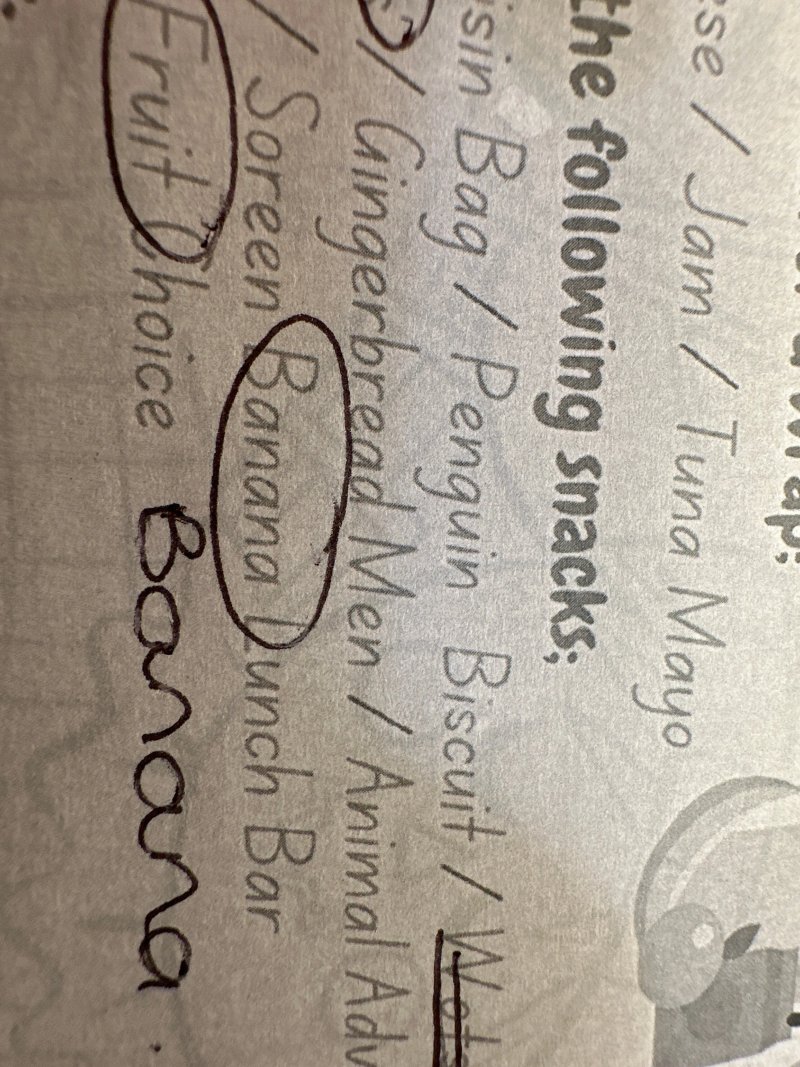 Jam / Tuna Mayo
the following snacks;
Bag / Penguin Biscuit /
/ Gingerbread Men / Animal
/ Soreen Banana Lunch Bar
Fruit Choice Banana.